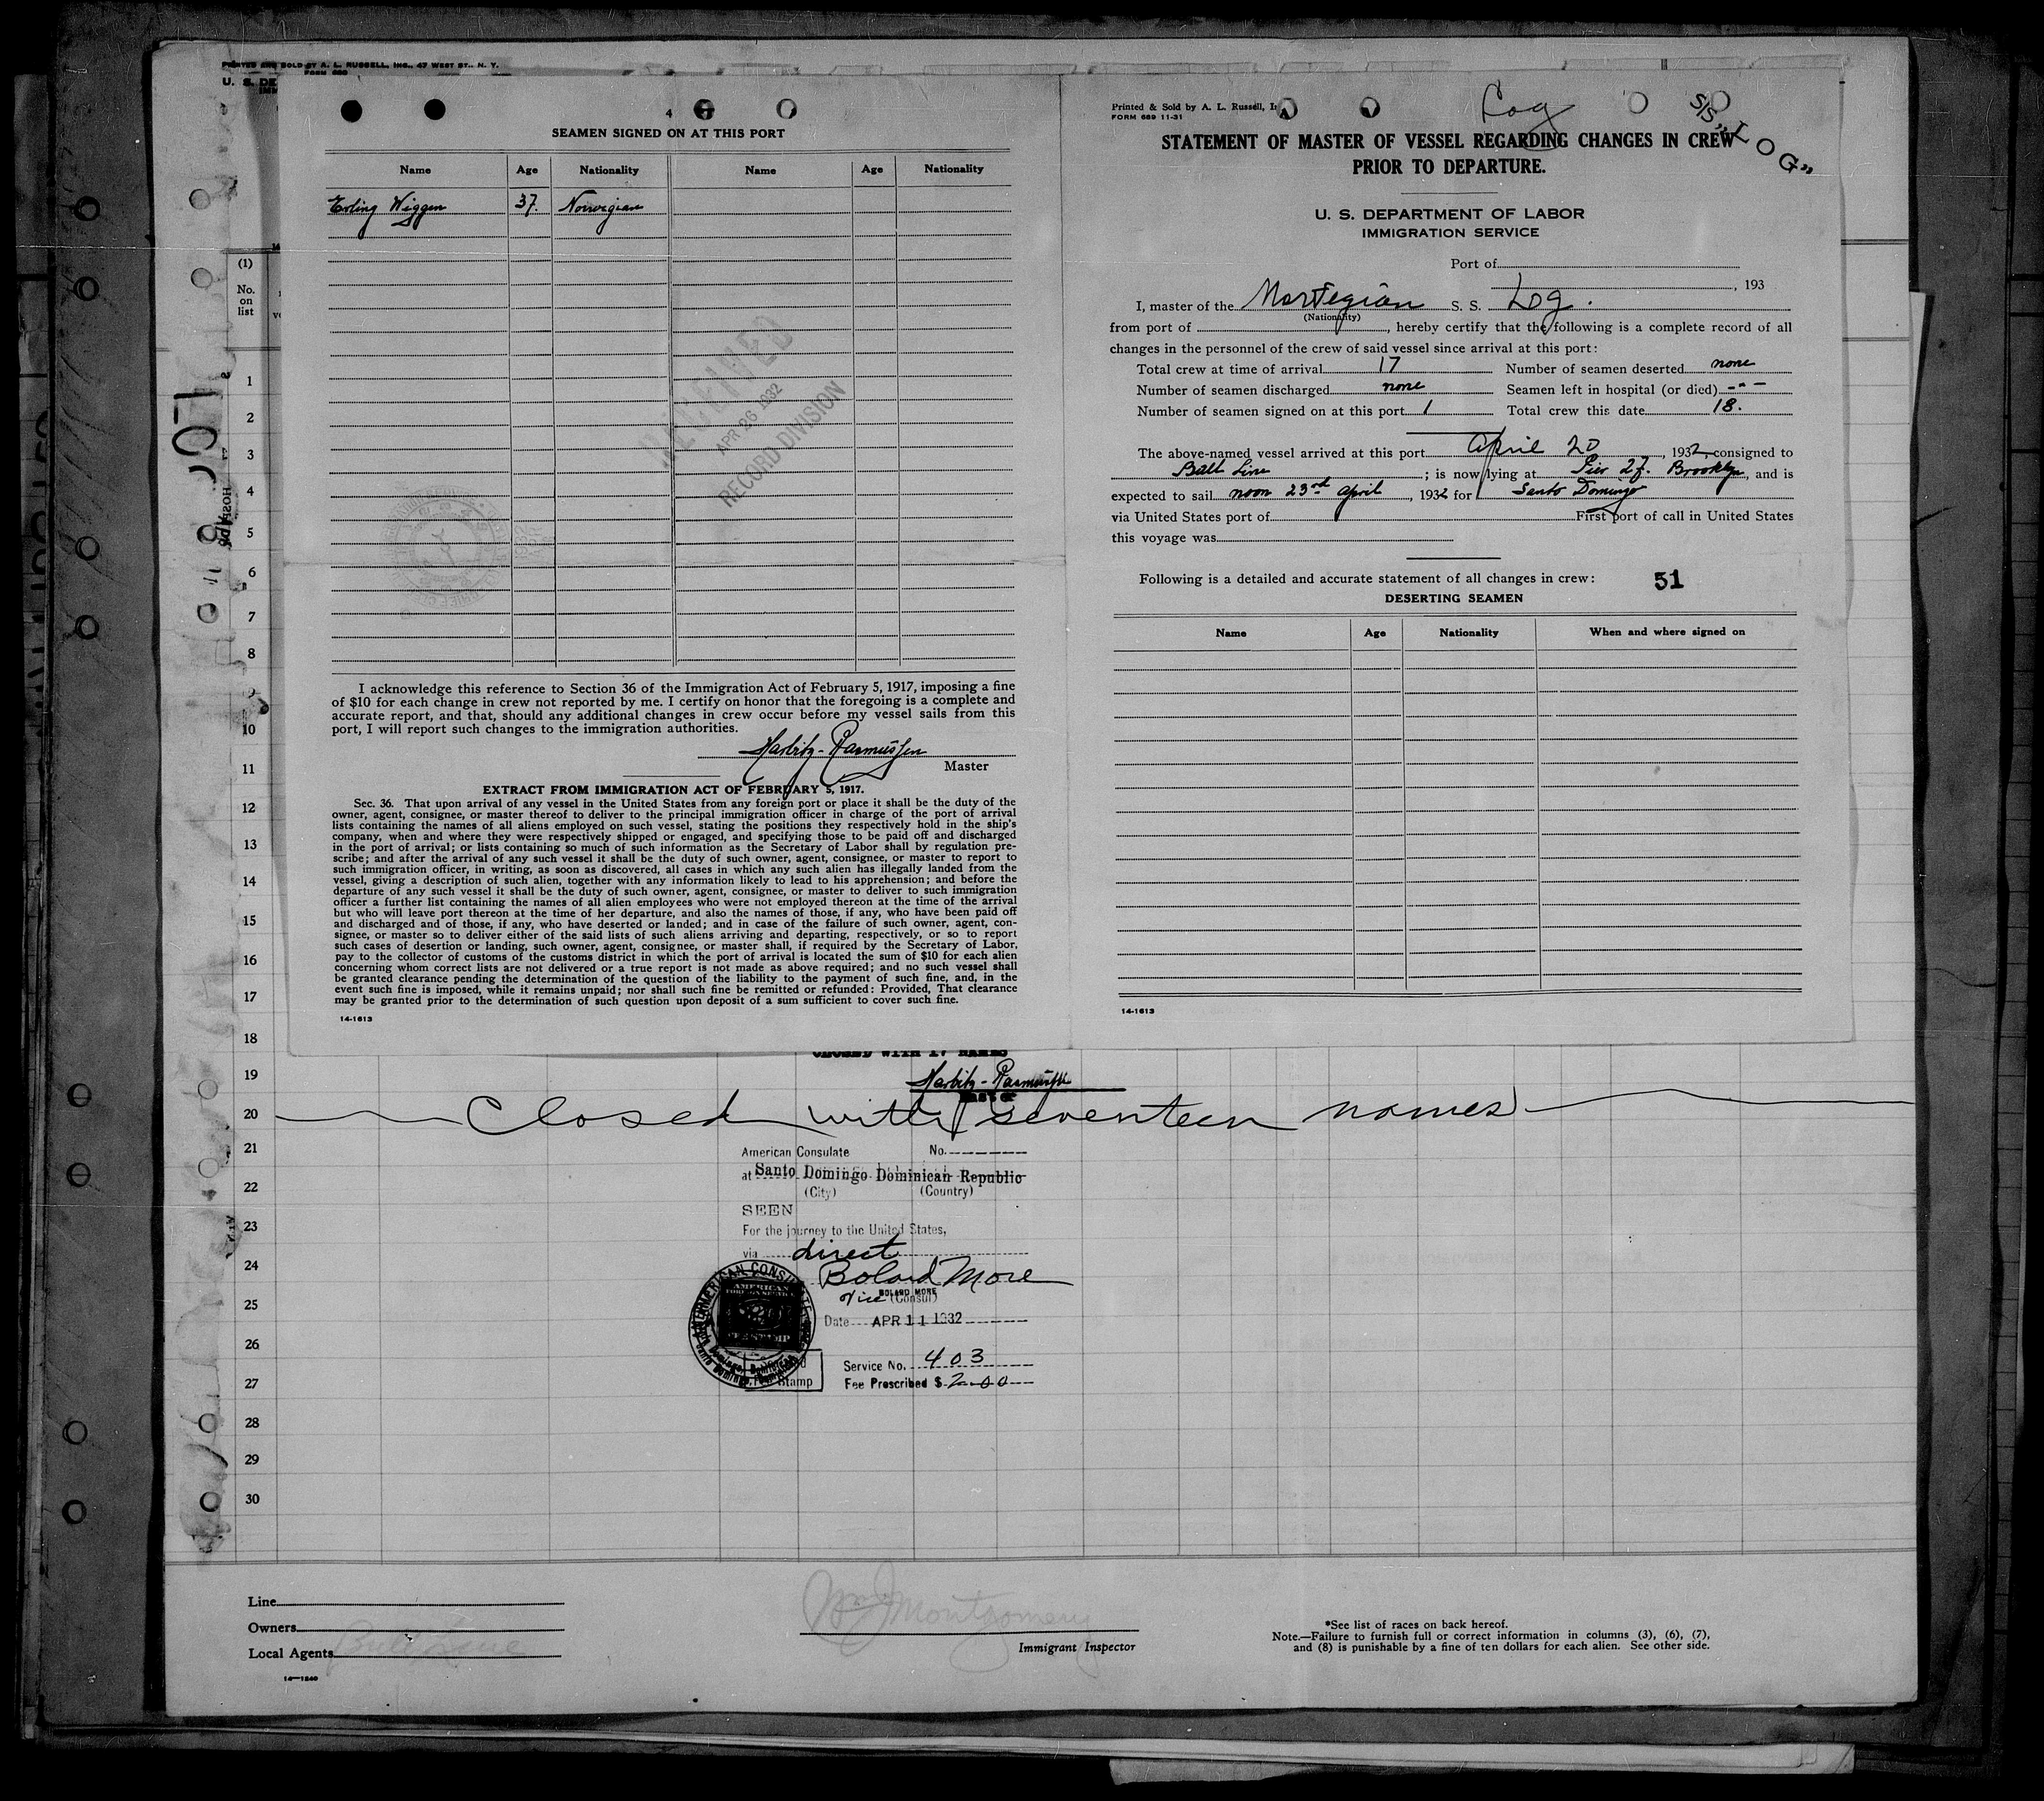 PRINTED AND SOLD BY A. L. RUSSELL, INC., 47 WEST ST., N. Y.
FORM 680
U. S. DE
4
SEAMEN SIGNED ON AT THIS PORT
Name Age Nationality Name Age Nationality
Erling Wiggen 37. Norwegian
RECEIVED
APR 26 1932
RECORD DIVISION
I acknowledge this reference to Section 36 of the Immigration Act of February 5, 1917, imposing a fine
of $10 for each change in crew not reported by me. I certify on honor that the foregoing is a complete and
accurate report, and that, should any additional changes in crew occur before my vessel sails from this
port, I will report such changes to the immigration authorities.
Harbitz-Rasmussen
Master
EXTRACT FROM IMMIGRATION ACT OF FEBRUARY 5, 1917.
Sec. 36. That upon arrival of any vessel in the United States from any foreign port or place it shall be the duty of the
owner, agent, consignee, or master thereof to deliver to the principal immigration officer in charge of the port of arrival
lists containing the names of all aliens employed on such vessel, stating the positions they respectively hold in the ship's
company, when and where they were respectively shipped or engaged, and specifying those to be paid off and discharged
in the port of arrival; or lists containing so much of such information as the Secretary of Labor shall by regulation pre-
scribe; and after the arrival of any such vessel it shall be the duty of such owner, agent, consignee, or master to report to
such immigration officer, in writing, as soon as discovered, all cases in which any such alien has illegally landed from the
vessel, giving a description of such alien, together with any information likely to lead to his apprehension; and before the
departure of any such vessel it shall be the duty of such owner, agent, consignee, or master to deliver to such immigration
officer a further list containing the names of all alien employees who were not employed thereon at the time of the arrival
but who will leave port thereon at the time of her departure, and also the names of those, if any, who have been paid off
and discharged and of those, if any, who have deserted or landed; and in case of the failure of such owner, agent, con-
signee, or master so to deliver either of the said lists of such aliens arriving and departing, respectively, or so to report
such cases of desertion or landing, such owner, agent, consignee, or master shall, if required by the Secretary of Labor,
pay to the collector of customs of the customs district in which the port of arrival is located the sum of $10 for each alien
concerning whom correct lists are not delivered or a true report is not made as above required; and no such vessel shall
be granted clearance pending the determination of the question of the liability to the payment of such fine, and, in the
event such fine is imposed, while it remains unpaid; nor shall such fine be remitted or refunded: Provided, That clearance
may be granted prior to the determination of such question upon deposit of a sum sufficient to cover such fine.
14-1613
Printed & Sold by A. L. Russell, In
FORM 689 11-31
Log
S/S „LOG”
STATEMENT OF MASTER OF VESSEL REGARDING CHANGES IN CREW
PRIOR TO DEPARTURE.
U. S. DEPARTMENT OF LABOR
IMMIGRATION SERVICE
Port of
, 193
I, master of the Norwegian S. S. Log.
(Nationality)
from port of , hereby certify that the following is a complete record of all
changes in the personnel of the crew of said vessel since arrival at this port:
Total crew at time of arrival 17 Number of seamen deserted none
Number of seamen discharged none Seamen left in hospital (or died) - " -
Number of seamen signed on at this port 1 Total crew this date 18.
The above-named vessel arrived at this port April 20, 1932, consigned to
Bull Line; is now lying at Pier 27. Brooklyn, and is
expected to sail noon 23rd April, 1932 for Santo Domingo
via United States port of First port of call in United States
this voyage was
Following is a detailed and accurate statement of all changes in crew: 51
DESERTING SEAMEN
Name Age Nationality When and where signed on
14-1613
(1)
No.
on
list
1
2
3
4
5
6
7
8
9
10
11
12
13
14
15
16
17
18
19
20
21
22
23
24
25
26
27
28
29
30
CLOSED WITH 17 NAMES
Harbitz-Rasmussen
Master
Closed with seventeen names
American Consulate No.
at Santo Domingo Dominican Republic
(City) (Country)
SEEN
For the journey to the United States,
via direct
Boland More
BOLAND MORE
Vice (Consul)
Date APR 11 1932
Service No. 403
Fee Prescribed $ 2.00
Stamp
Line
Owners
Local Agents Bull Line
14-1240
Wm J Montgomery
Immigrant Inspector
*See list of races on back hereof.
Note.—Failure to furnish full or correct information in columns (3), (6), (7),
and (8) is punishable by a fine of ten dollars for each alien. See other side.